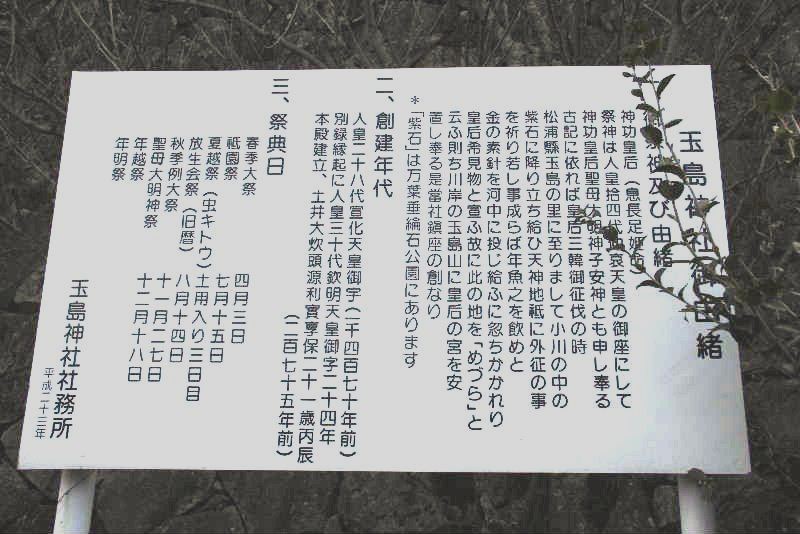 玉島神社御由緒
御祭神及び由緒
神功皇后（息長足姫命）
祭神は人皇拾四代仲哀天皇の御座にして
神功皇后聖母大明神子安神とも申し奉る
古記に依れば皇后三韓御征伐の時
松浦縣玉島の里に至りまして小川の中の
紫石に降り立ち給ひ天神地祗に外征の事
を祈り若し事成らば年魚之を飲めと
金の素針を河中に投じ給ふに忽ちかかれり
皇后希見物と宣ふ故に此の地を「めづら」と
云ふ則ち川岸の玉島山に皇后の宮を安
置し奉る是當社鎮座の創なり
＊「紫石」は万葉垂綸石公園にあります
二、創建年代
人皇二十八代宣化天皇御宇（一千四百七十年前）
別録縁起に人皇三十代欽明天皇御宇二十四年
本殿建立、土井大炊頭源利實享保二十一歳丙辰
（二百七十五年前）
三、祭典日
春季大祭 四月三日
祗園祭 七月十五日
夏越祭（虫キトウ）土用入り三日目
放生会祭（旧暦）八月十四日
秋季例大祭 十一月二七日
聖母大明神祭 十二月十八日
年越祭
年明祭
玉島神社社務所
平成二十三年